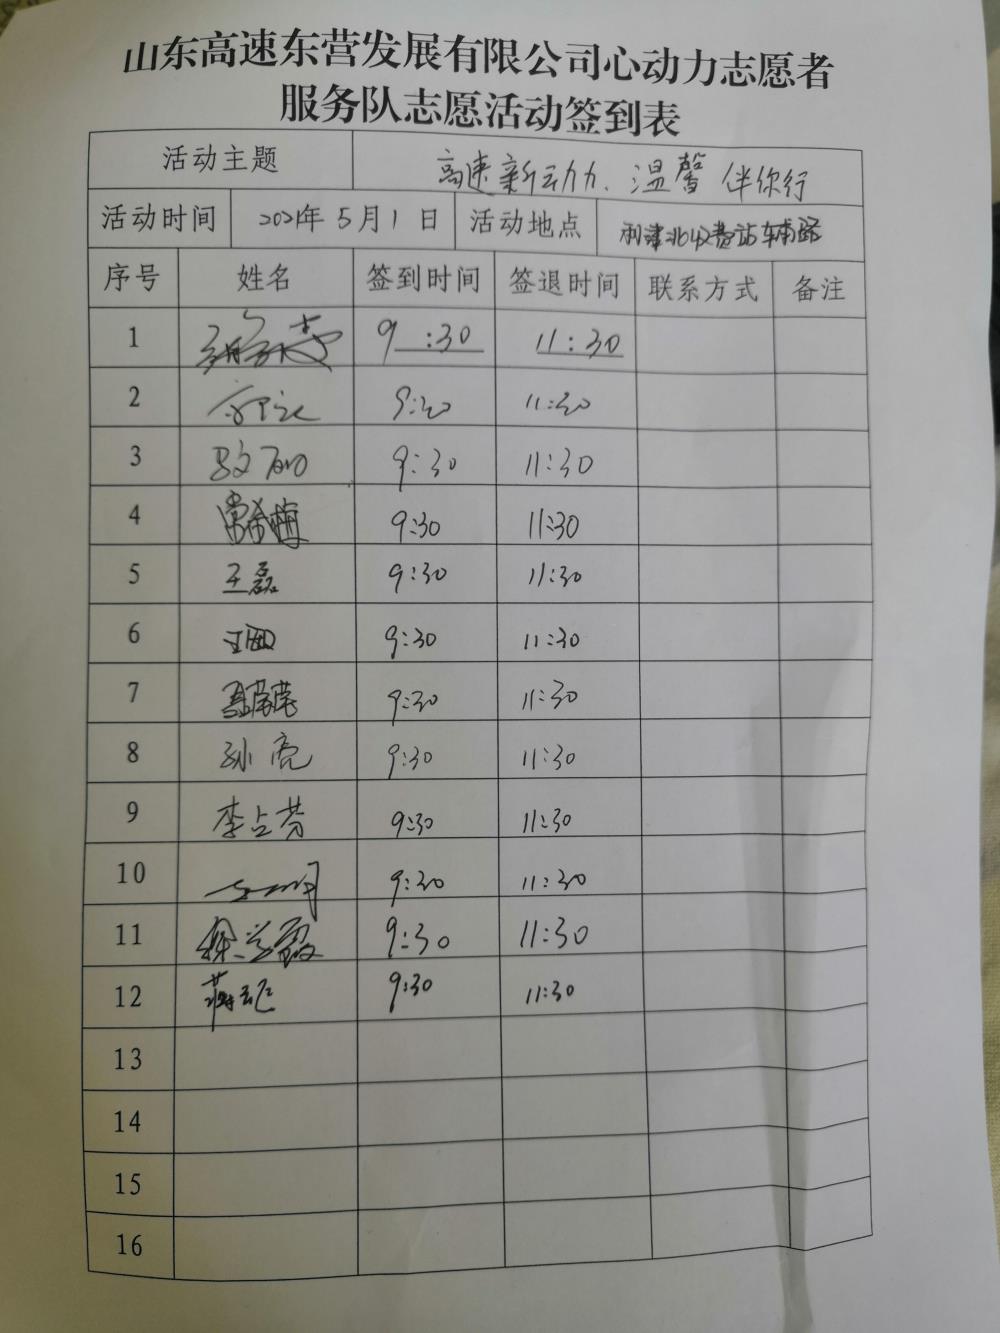 山东高速东营发展有限公司心动力志愿者
服务队志愿活动签到表
活动主题 高速新动力、温馨伴你行
活动时间 2021年5月1日 活动地点 利津北收费站车辅路
序号 姓名 签到时间 签退时间 联系方式 备注
1 9:30 11:30
2 9:30 11:30
3 9:30 11:30
4 常希梅 9:30 11:30
5 王磊 9:30 11:30
6 9:30 11:30
7 9:30 11:30
8 孙亮 9:30 11:30
9 李占芳 9:30 11:30
10 9:30 11:30
11 9:30 11:30
12 9:30 11:30
13
14
15
16